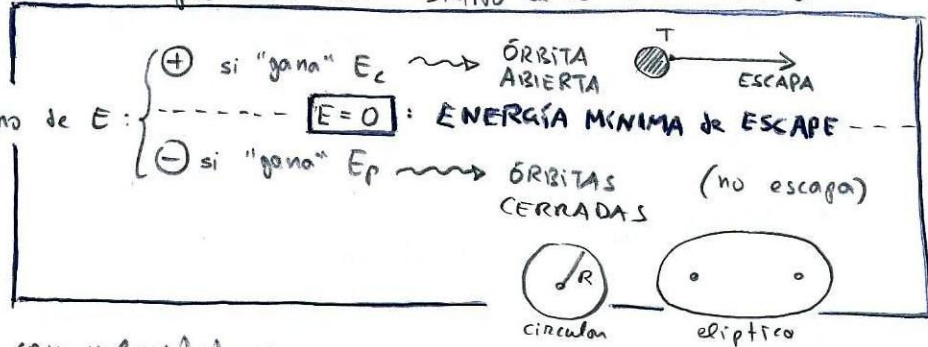 ⊕ si "gana" Ec ⟿ ÓRBITA ABIERTA T ESCAPA
no de E :
E = 0 : ENERGÍA MÍNIMA de ESCAPE
⊖ si "gana" Ep ⟿ ÓRBITAS CERRADAS (no escapa)
R
circular elíptica